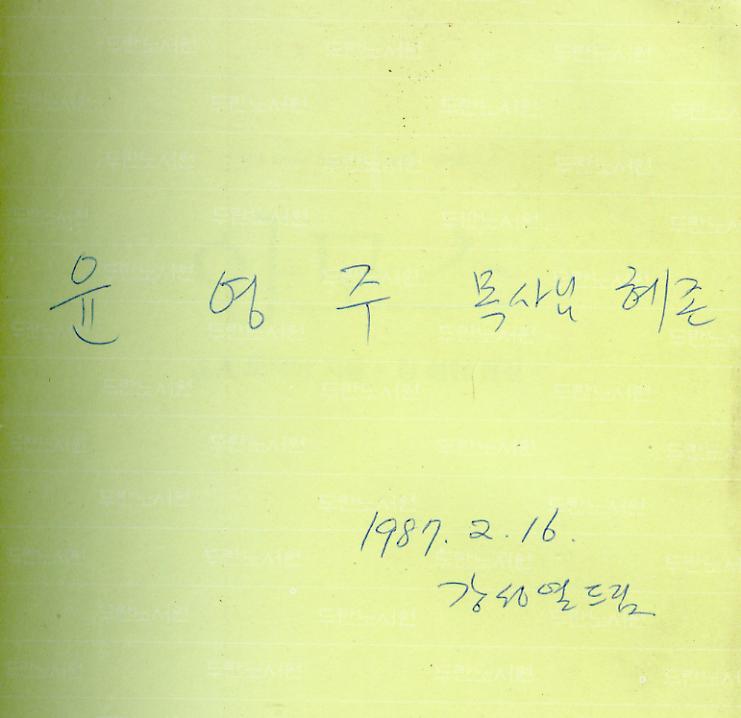 윤 영 주 목사님 혜존
1987. 2. 16.
강성열 드림